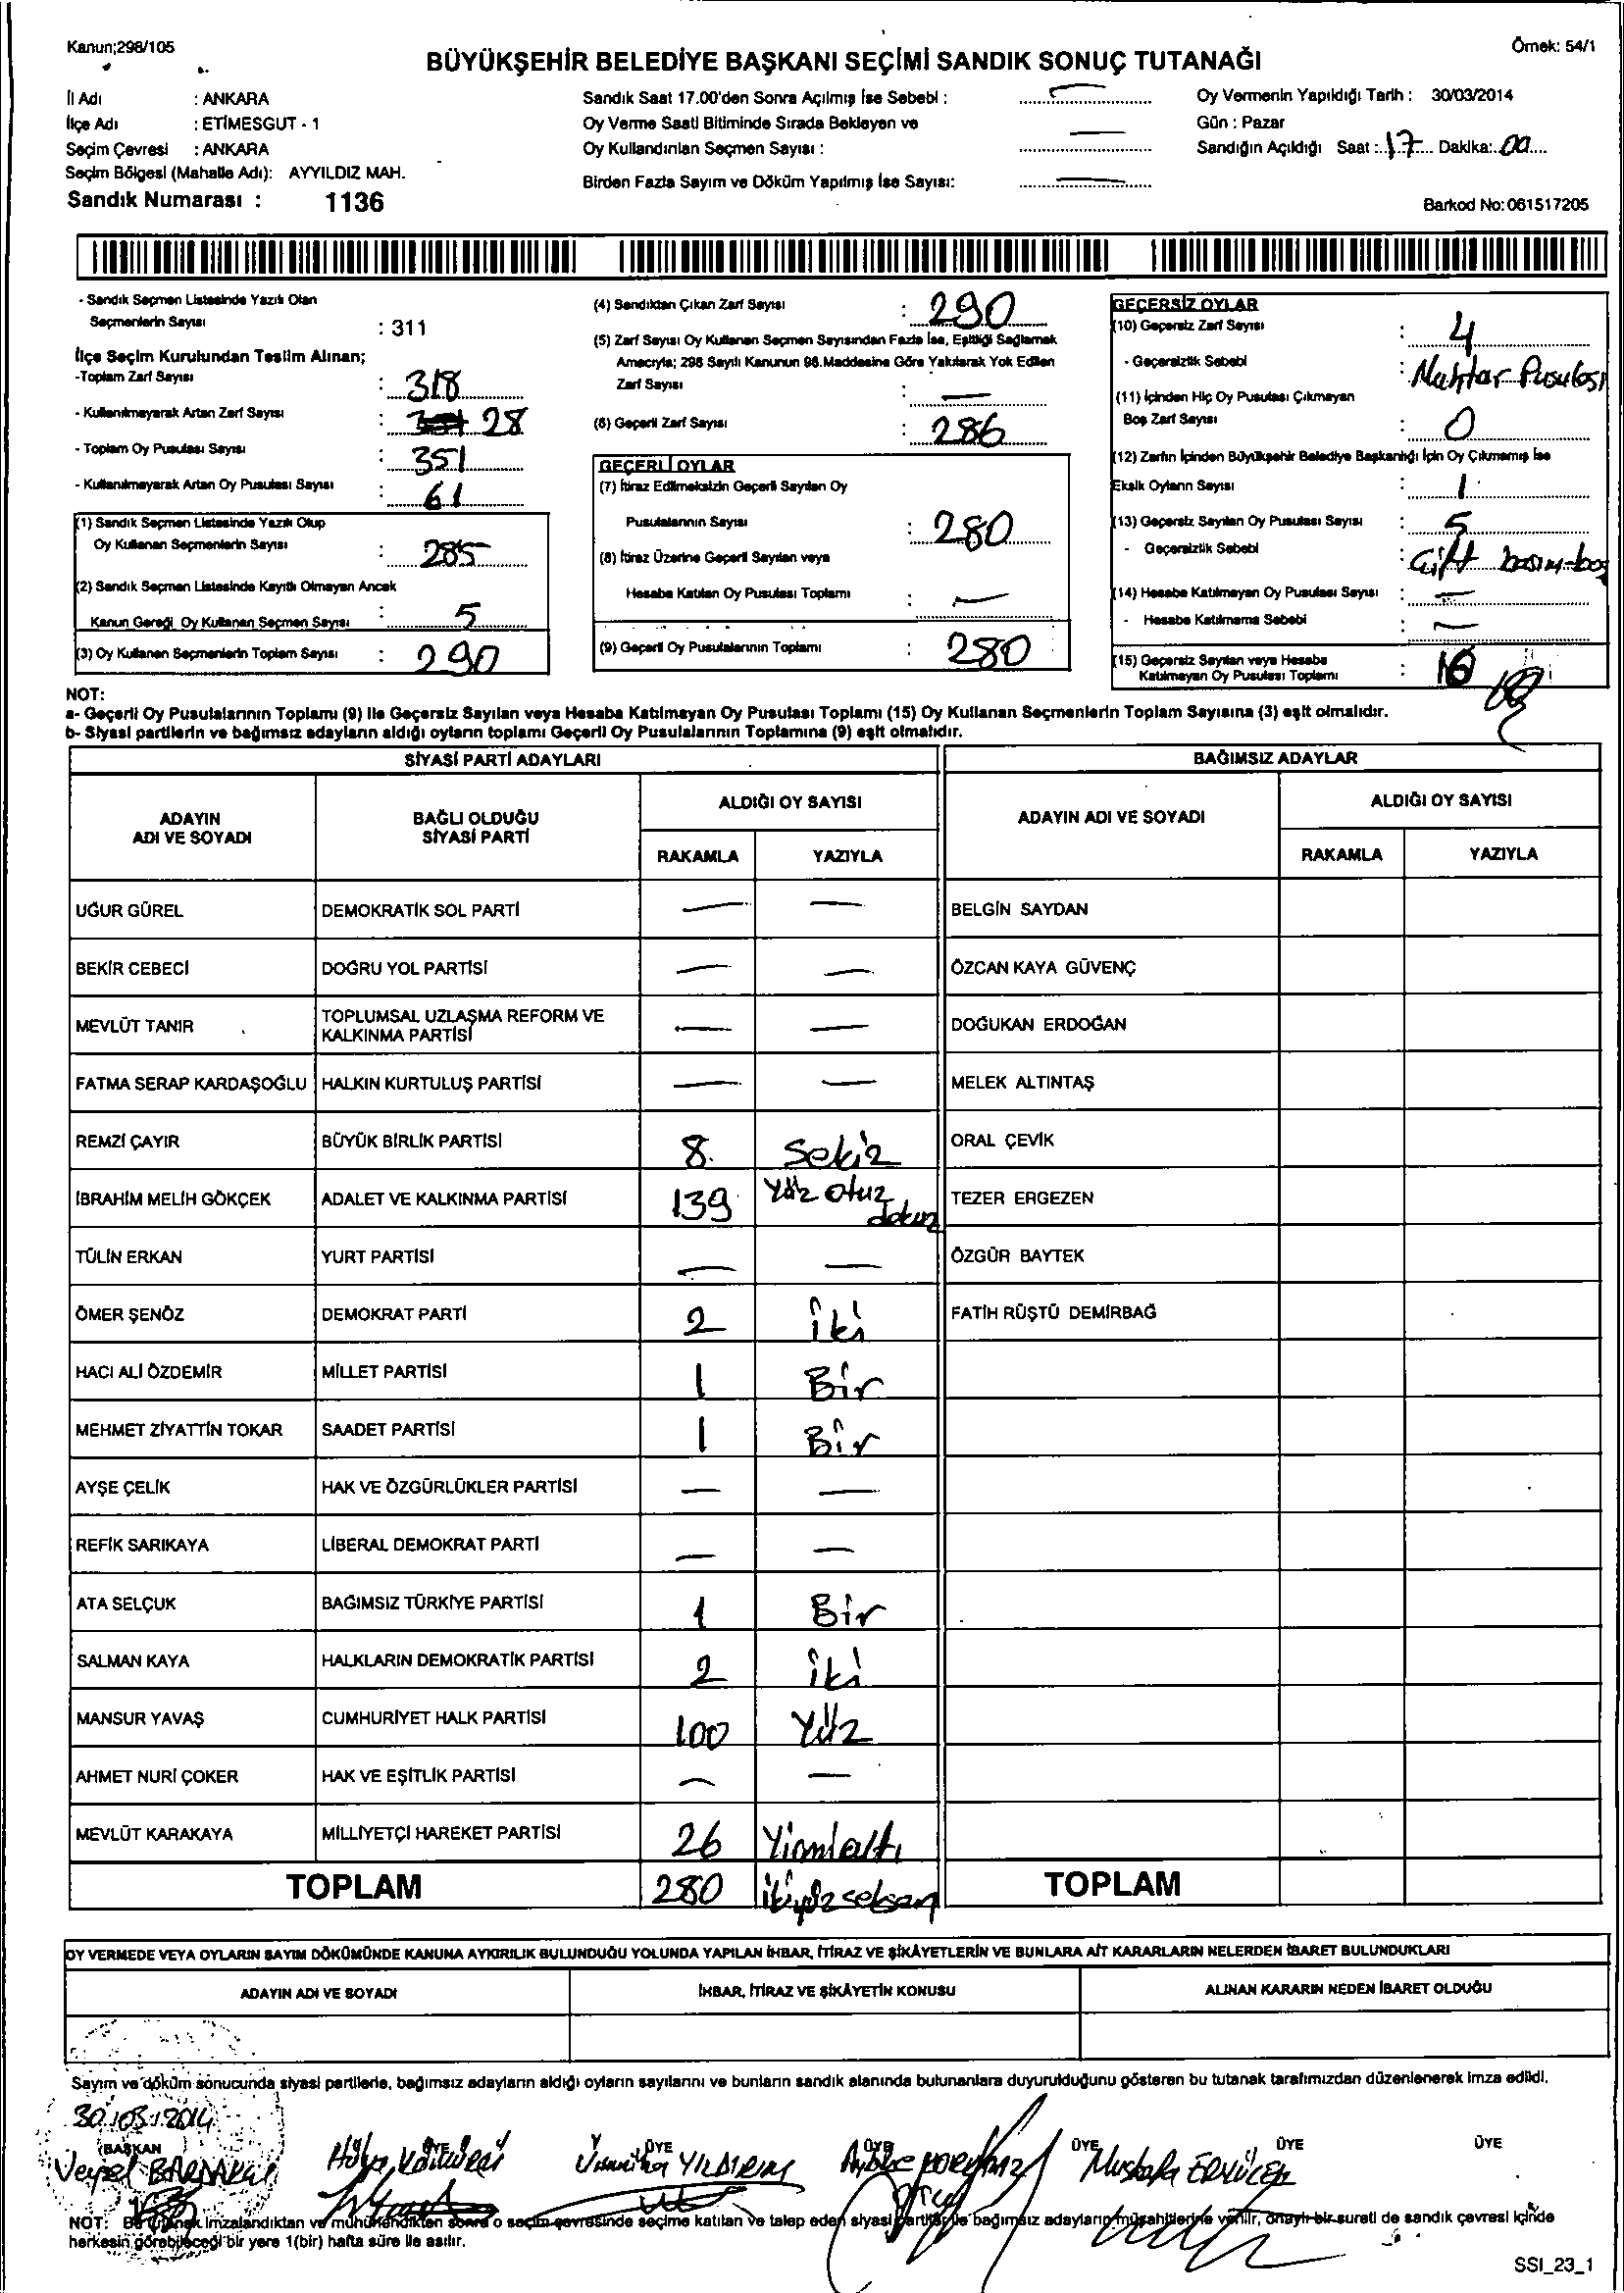 Kanun;298/105
Örnek: 54/1
BÜYÜKŞEHİR BELEDİYE BAŞKANI SEÇİMİ SANDIK SONUÇ TUTANAĞI
İl Adı : ANKARA
İlçe Adı : ETİMESGUT - 1
Seçim Çevresi : ANKARA
Seçim Bölgesi (Mahalle Adı): AYYILDIZ MAH.
Sandık Numarası : 1136
Sandık Saat 17.00'den Sonra Açılmış İse Sebebi : —
Oy Verme Saati Bitiminde Sırada Bekleyen ve
Oy Kullandırılan Seçmen Sayısı : —
Birden Fazla Sayım ve Döküm Yapılmış İse Sayısı: —
Oy Vermenin Yapıldığı Tarih : 30/03/2014
Gün : Pazar
Sandığın Açıldığı Saat : 17 Dakika: 00
Barkod No: 061517205
- Sandık Seçmen Listesinde Yazılı Olan
Seçmenlerin Sayısı : 311
İlçe Seçim Kurulundan Teslim Alınan;
-Toplam Zarf Sayısı : 318
- Kullanılmayarak Artan Zarf Sayısı : 28
- Toplam Oy Pusulası Sayısı : 351
- Kullanılmayarak Artan Oy Pusulası Sayısı : 61
(1) Sandık Seçmen Listesinde Yazılı Olup
Oy Kullanan Seçmenlerin Sayısı : 285
(2) Sandık Seçmen Listesinde Kayıtlı Olmayan Ancak
Kanun Gereği Oy Kullanan Seçmen Sayısı : 5
(3) Oy Kullanan Seçmenlerin Toplam Sayısı : 290
(4) Sandıktan Çıkan Zarf Sayısı : 290
(5) Zarf Sayısı Oy Kullanan Seçmen Sayısından Fazla İse, Eşitliği Sağlamak
Amacıyla; 298 Sayılı Kanunun 98.Maddesine Göre Yakılarak Yok Edilen
Zarf Sayısı : —
(6) Geçerli Zarf Sayısı : 286
GEÇERLİ OYLAR
(7) İtiraz Edilmeksizin Geçerli Sayılan Oy
Pusulalarının Sayısı : 280
(8) İtiraz Üzerine Geçerli Sayılan veya
Hesaba Katılan Oy Pusulası Toplamı : —
(9) Geçerli Oy Pusulalarının Toplamı : 280
GEÇERSİZ OYLAR
(10) Geçersiz Zarf Sayısı : 4
- Geçersizlik Sebebi : Muhtar Pusulası
(11) İçinden Hiç Oy Pusulası Çıkmayan
Boş Zarf Sayısı : 0
(12) Zarfın İçinden Büyükşehir Belediye Başkanlığı İçin Oy Çıkmamış İse
Eksik Oyların Sayısı : 1
(13) Geçersiz Sayılan Oy Pusulası Sayısı : 5
- Geçersizlik Sebebi : Çift basım-boş
(14) Hesaba Katılmayan Oy Pusulası Sayısı : —
- Hesaba Katılmama Sebebi : —
(15) Geçersiz Sayılan veya Hesaba
Katılmayan Oy Pusulası Toplamı : 10
NOT:
a- Geçerli Oy Pusulalarının Toplamı (9) ile Geçersiz Sayılan veya Hesaba Katılmayan Oy Pusulası Toplamı (15) Oy Kullanan Seçmenlerin Toplam Sayısına (3) eşit olmalıdır.
b- Siyasi partilerin ve bağımsız adayların aldığı oyların toplamı Geçerli Oy Pusulalarının Toplamına (9) eşit olmalıdır.
SİYASİ PARTİ ADAYLARI BAĞIMSIZ ADAYLAR
ADAYIN ADI VE SOYADI BAĞLI OLDUĞU SİYASİ PARTİ ALDIĞI OY SAYISI ADAYIN ADI VE SOYADI ALDIĞI OY SAYISI
RAKAMLA YAZIYLA RAKAMLA YAZIYLA
UĞUR GÜREL DEMOKRATİK SOL PARTİ — — BELGİN SAYDAN
BEKİR CEBECİ DOĞRU YOL PARTİSİ — — ÖZCAN KAYA GÜVENÇ
MEVLÜT TANIR TOPLUMSAL UZLAŞMA REFORM VE KALKINMA PARTİSİ — — DOĞUKAN ERDOĞAN
FATMA SERAP KARDAŞOĞLU HALKIN KURTULUŞ PARTİSİ — — MELEK ALTINTAŞ
REMZİ ÇAYIR BÜYÜK BİRLİK PARTİSİ 8 Sekiz ORAL ÇEVİK
İBRAHİM MELİH GÖKÇEK ADALET VE KALKINMA PARTİSİ 139 Yüz otuz dokuz TEZER ERGEZEN
TÜLİN ERKAN YURT PARTİSİ — — ÖZGÜR BAYTEK
ÖMER ŞENÖZ DEMOKRAT PARTİ 2 iki FATİH RÜŞTÜ DEMİRBAĞ
HACI ALİ ÖZDEMİR MİLLET PARTİSİ 1 Bir
MEHMET ZİYATTİN TOKAR SAADET PARTİSİ 1 Bir
AYŞE ÇELİK HAK VE ÖZGÜRLÜKLER PARTİSİ — —
REFİK SARIKAYA LİBERAL DEMOKRAT PARTİ — —
ATA SELÇUK BAĞIMSIZ TÜRKİYE PARTİSİ 1 Bir
SALMAN KAYA HALKLARIN DEMOKRATİK PARTİSİ 2 iki
MANSUR YAVAŞ CUMHURİYET HALK PARTİSİ 100 Yüz
AHMET NURİ ÇOKER HAK VE EŞİTLİK PARTİSİ — —
MEVLÜT KARAKAYA MİLLİYETÇİ HAREKET PARTİSİ 26 Yirmialtı
TOPLAM 280 ikiyüzseksen TOPLAM
OY VERMEDE VEYA OYLARIN SAYIM DÖKÜMÜNDE KANUNA AYKIRILIK BULUNDUĞU YOLUNDA YAPILAN İHBAR, İTİRAZ VE ŞİKÂYETLERİN VE BUNLARA AİT KARARLARIN NELERDEN İBARET BULUNDUKLARI
ADAYIN ADI VE SOYADI İHBAR, İTİRAZ VE ŞİKÂYETİN KONUSU ALINAN KARARIN NEDEN İBARET OLDUĞU
Sayım ve döküm sonucunda siyasi partilerle, bağımsız adayların aldığı oyların sayılarını ve bunların sandık alanında bulunanlara duyurulduğunu gösteren bu tutanak tarafımızdan düzenlenerek imza edildi.
30.03.2014
BAŞKAN ÜYE ÜYE ÜYE ÜYE ÜYE ÜYE
Veysel YILDIRIM Mustafa
NOT: Bu tutanak imzalandıktan ve mühürlendikten sonra o seçim çevresinde seçime katılan ve talep eden siyasi partiler ile bağımsız adayların müşahitlerine verilir, onaylı bir sureti de sandık çevresi içinde
herkesin görebileceği bir yere 1(bir) hafta süre ile asılır.
SSI_23_1